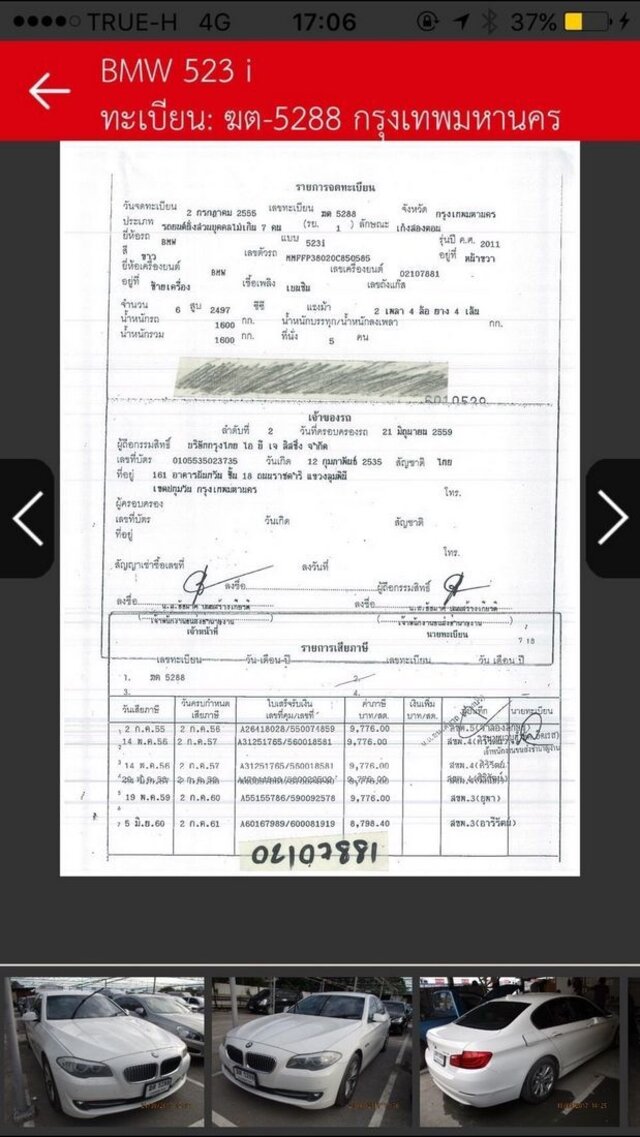 TRUE-H 4G 17:06 37%
BMW 523 i
ทะเบียน: ฆต-5288 กรุงเทพมหานคร
รายการจดทะเบียน
วันจดทะเบียน 2 กรกฎาคม 2555 เลขทะเบียน ฆต 5288 จังหวัด กรุงเทพมหานคร
ประเภท รถยนต์นั่งส่วนบุคคลไม่เกิน 7 คน (รย. 1 ) ลักษณะ เก๋งสองตอน
ยี่ห้อรถ BMW แบบ 523i รุ่นปี ค.ศ. 2011
สี ขาว เลขตัวรถ MMFFP38020C850585 อยู่ที่ หน้าขวา
ยี่ห้อเครื่องยนต์ BMW เลขเครื่องยนต์ 02107881
อยู่ที่ ซ้ายเครื่อง เชื้อเพลิง เบนซิน เลขถังแก๊ส
จำนวน 6 สูบ 2497 ซีซี แรงม้า 2 เพลา 4 ล้อ ยาง 4 เส้น
น้ำหนักรถ 1600 กก. น้ำหนักบรรทุก/น้ำหนักลงเพลา กก.
น้ำหนักรวม 1600 กก. ที่นั่ง 5 คน
เจ้าของรถ
ลำดับที่ 2 วันที่ครอบครองรถ 21 มิถุนายน 2559
ผู้ถือกรรมสิทธิ์ บริษัทกรุงไทย ไอ บี เจ ลิสซิ่ง จำกัด
เลขที่บัตร 0105535023735 วันเกิด 12 กุมภาพันธ์ 2535 สัญชาติ ไทย
ที่อยู่ 161 อาคารนันทวัน ชั้น 18 ถนนราชดำริ แขวงลุมพินี
เขตปทุมวัน กรุงเทพมหานคร โทร.
ผู้ครอบครอง
เลขที่บัตร วันเกิด สัญชาติ
ที่อยู่
โทร.
สัญญาเช่าซื้อเลขที่ ลงวันที่
ลงชื่อ ผู้ถือกรรมสิทธิ์
ลงชื่อ ลงชื่อ
เจ้าหน้าที่ นายทะเบียน
รายการเสียภาษี
เลขทะเบียน วัน-เดือน-ปี เลขทะเบียน วัน เดือน ปี
1. ฆต 5288 2.
3. 4.
วันเสียภาษี วันครบกำหนดเสียภาษี ใบเสร็จรับเงิน เลขที่คุม/เลขที่ ค่าภาษี บาท/สต. เงินเพิ่ม บาท/สต. นายทะเบียน
1 2 ก.ค.55 2 ก.ค.56 A26418028/550074859 9,776.00
2 14 พ.ค.56 2 ก.ค.57 A31251765/560018581 9,776.00
3 14 พ.ค.56 2 ก.ค.57 A31251765/560018581 9,776.00
19 พ.ค.59 2 ก.ค.60 A55155786/590092578 9,776.00 สขพ.3(ยุพา)
7 5 มิ.ย.60 2 ก.ค.61 A60167989/600081919 8,798.40 สขพ.3(อารีรัตน์)
188270120